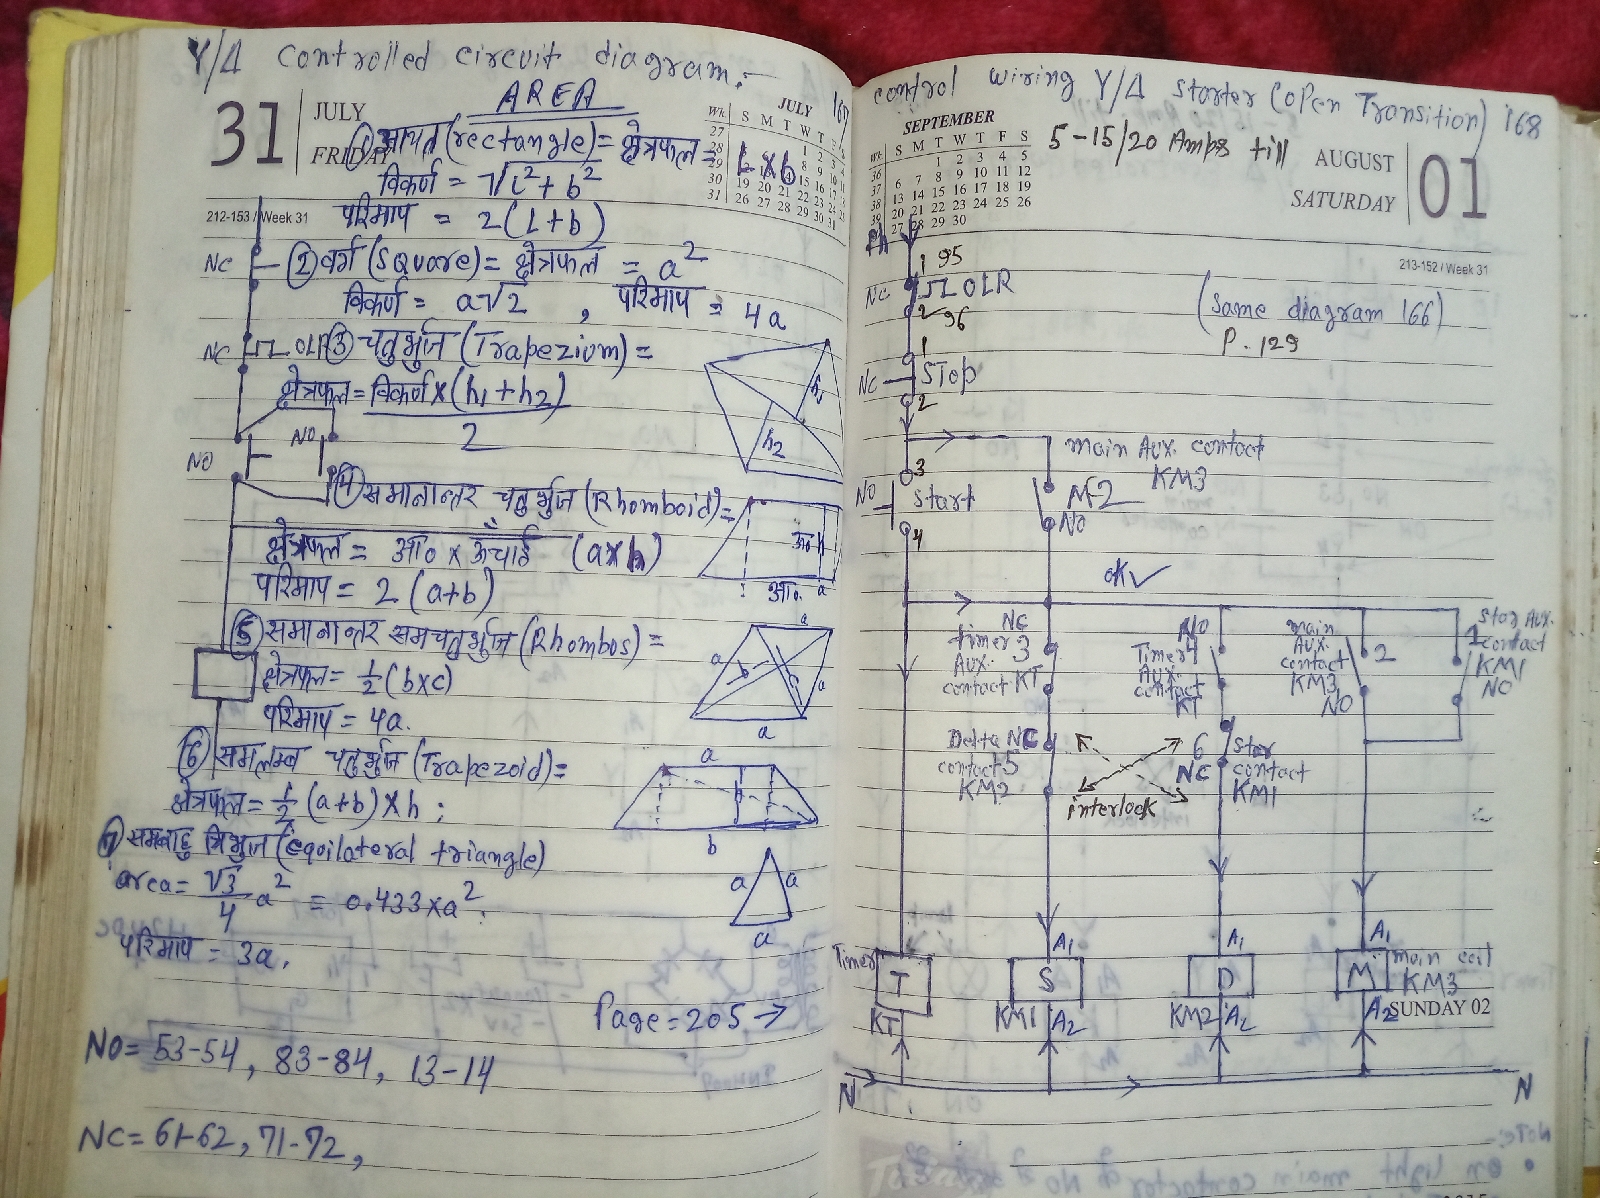 Y/Δ controlled circuit diagram:-
167
31
JULY
FRIDAY
212-153 / Week 31
AREA
JULY
Wk S M T W T
① आयत (rectangle) = क्षेत्रफल = L×b
विकर्ण = √l²+b²
परिमाप = 2(L+b)
NC
② वर्ग (square) = क्षेत्रफल = a²
विकर्ण = a√2 , परिमाप = 4a
NC OLR
③ चतुर्भुज (Trapezium) =
क्षेत्रफल = विकर्ण×(h₁+h₂)
2
h₂
NO
NO
④ समानान्तर चतुर्भुज (Rhomboid) =
क्षेत्रफल = आ० × ऊँचाई (a×h)
परिमाप = 2(a+b)
आ०
a
⑤ समानान्तर समचतुर्भुज (Rhombos) =
क्षेत्रफल = ½(b×c)
परिमाप = 4a.
a
a b c a
a
⑥ समलम्ब चतुर्भुज (Trapezoid) =
क्षेत्रफल = ½(a+b)×h ;
a
b
⑦ समबाहु त्रिभुज (equilateral triangle)
area = √3/4 a² = 0.433×a².
परिमाप = 3a.
a a
a
Page=205→
NO= 53-54, 83-84, 13-14
NC= 61-62, 71-72,
control wiring Y/Δ starter (open Transition) 168
SEPTEMBER
Wk S M T W T F S
36 1 2 3 4 5
37 6 7 8 9 10 11 12
38 13 14 15 16 17 18 19
39 20 21 22 23 24 25 26
27 28 29 30
5-15/20 Amps till
AUGUST
SATURDAY
01
213-152 / Week 31
Ph
1 95
NC OLR
2 96
(same diagram 166)
P. 129
1
NC Stop
2
main Aux. contact
KM3
3
NO Start
4
M-2
NO
OK✓
NC
timer 3
Aux.
contact KT
NO
Timer 4
Aux.
contact
KT
main
Aux.
contact
KM3
NO
2
Star Aux.
1 contact
KM1
NO
Delta NC
contact 5
KM2
interlock
6
NC
Star
contact
KM1
Timer T
KT
A₁
S
KM1 A₂
A₁
D
KM2 A₂
A₁
M main coil
KM3
A₂
SUNDAY 02
N N